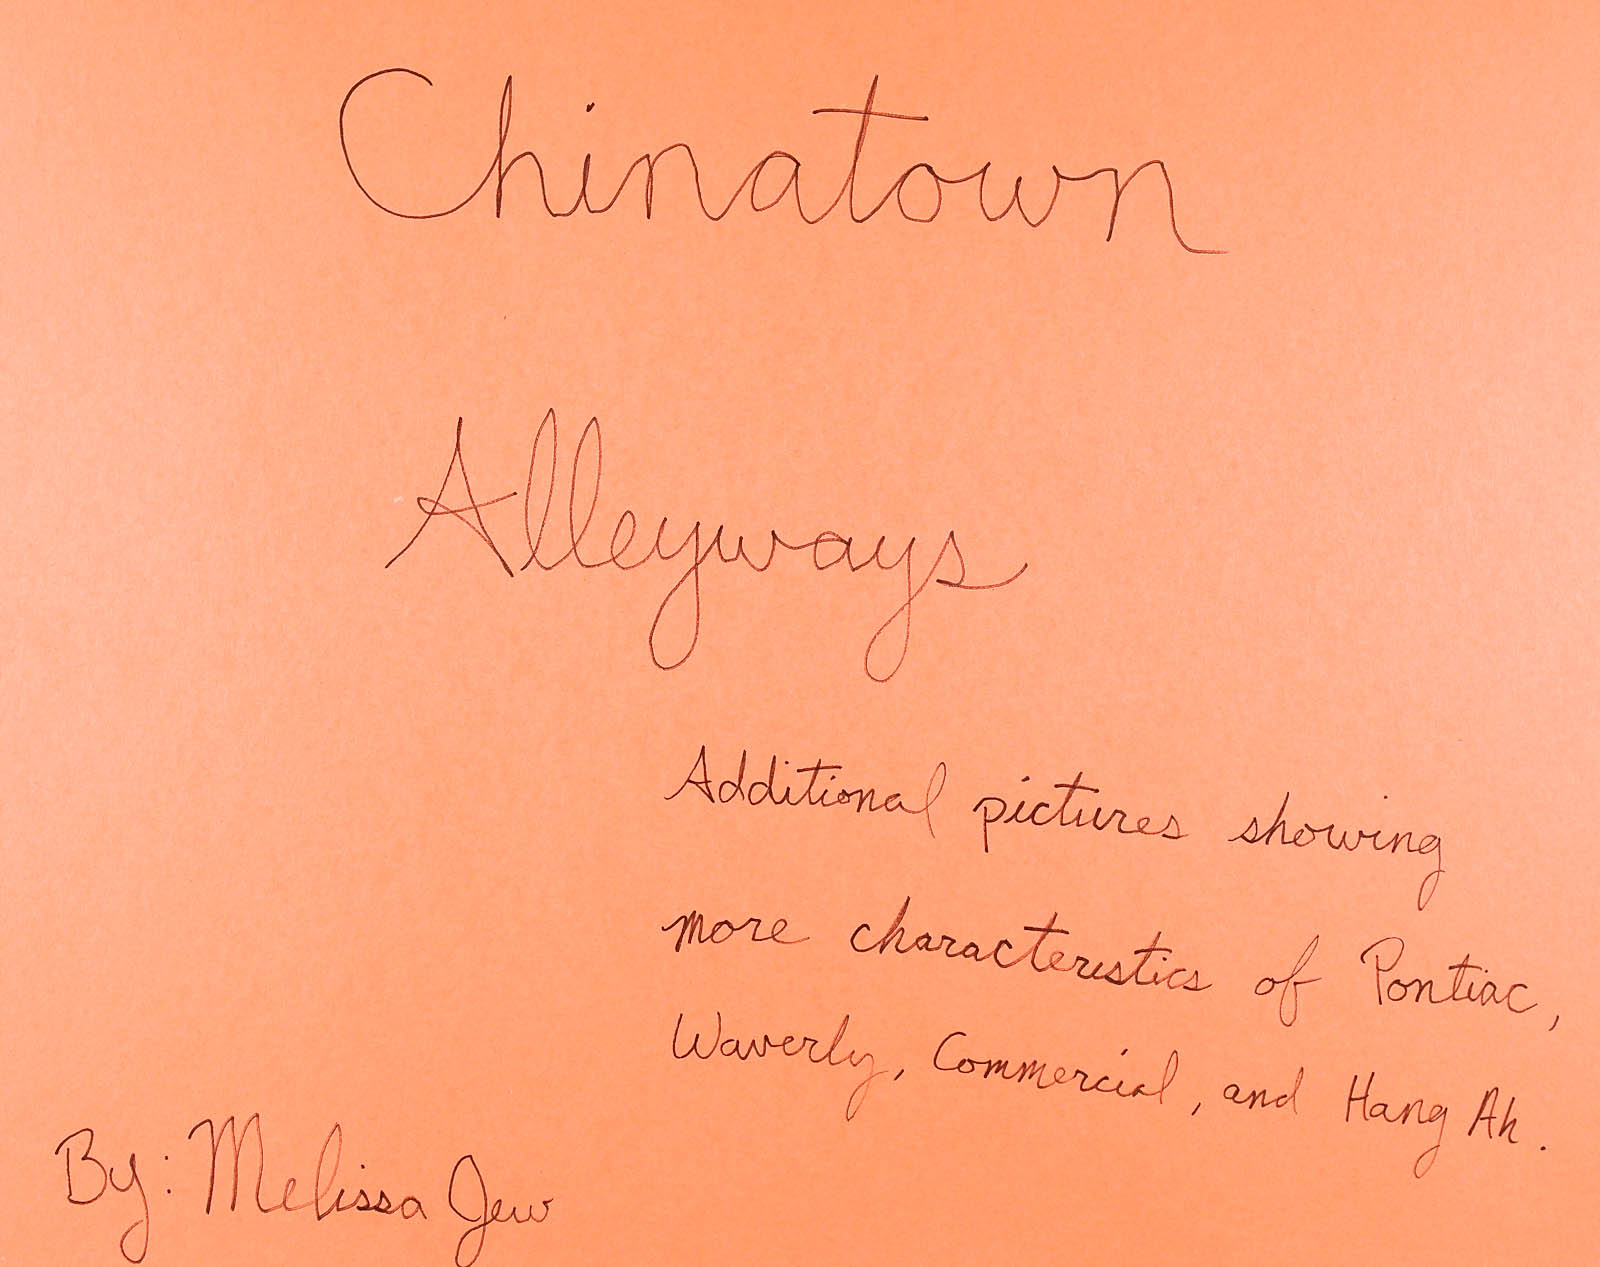 Chinatown
Alleyways
Additional pictures showing
more characteristics of Pontiac,
Waverly, Commercial, and Hang Ah.
By: Melissa Jew